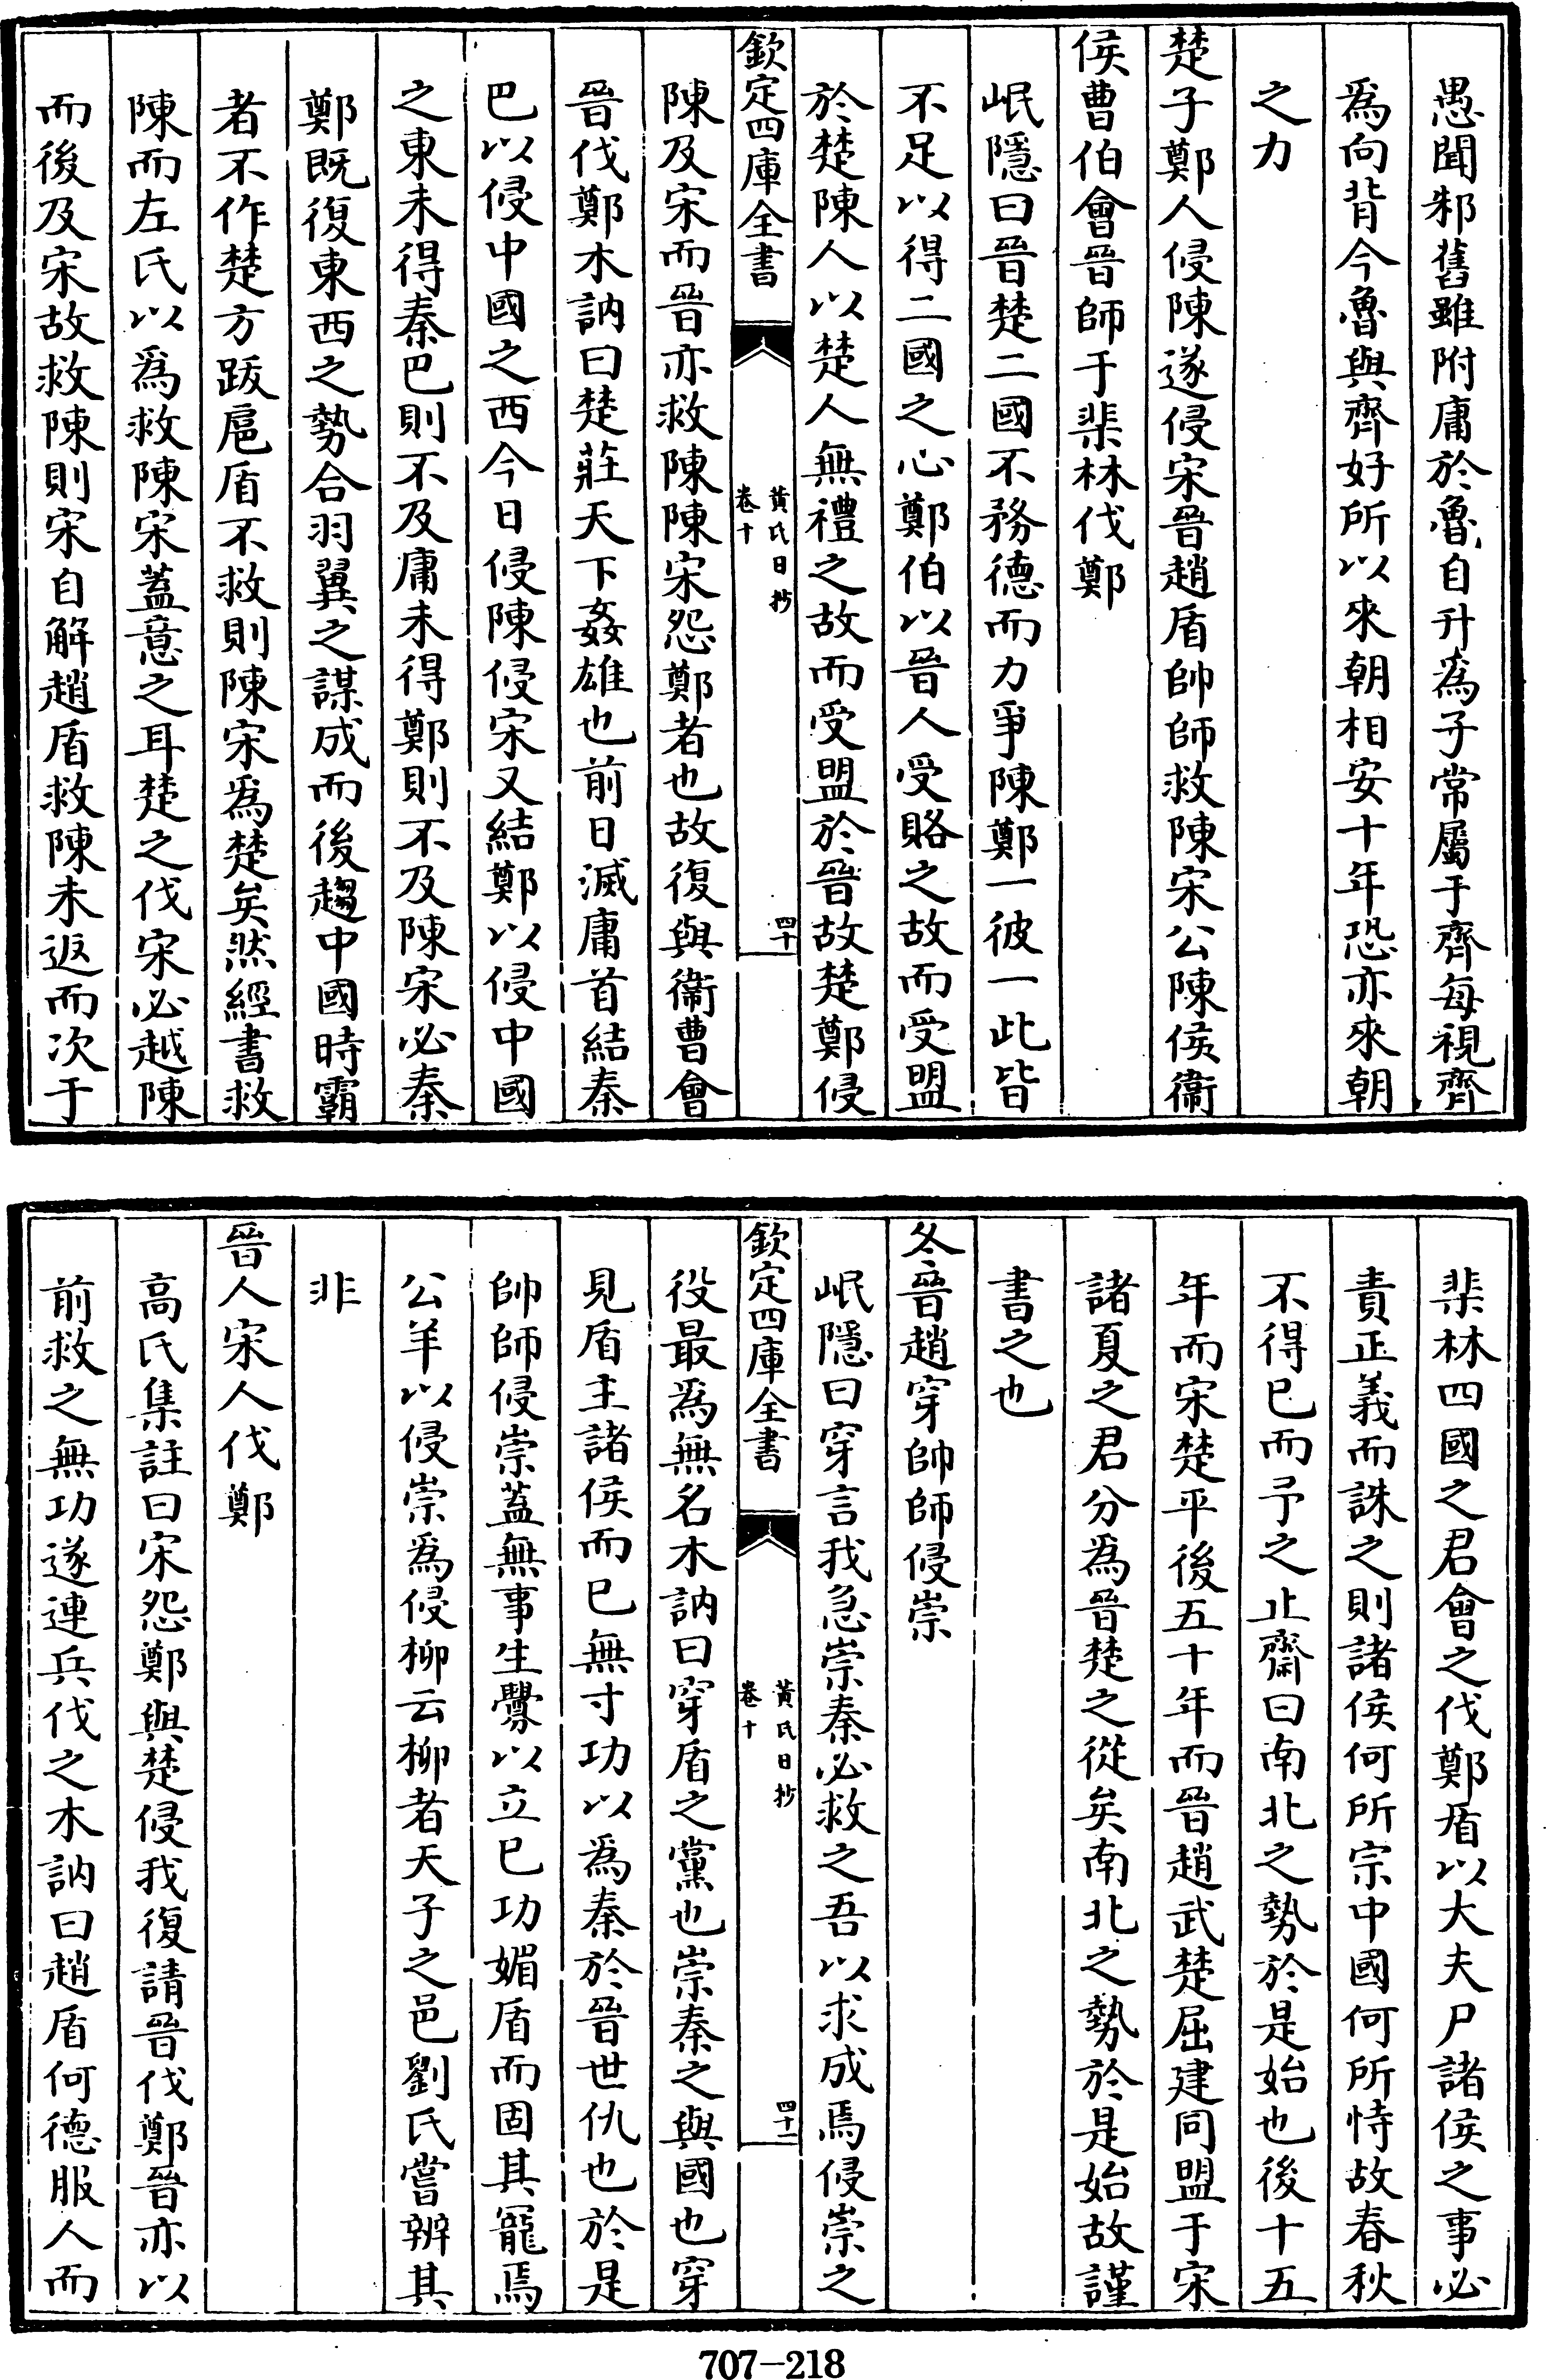 愚聞邾舊雖附庸於魯自升爲子常屬于齊每視齊
爲向背今魯與齊好所以來朝相安十年恐亦來朝
之力
楚子鄭人侵陳遂侵宋晉趙盾帥師救陳宋公陳侯衞
侯曹伯會晉師于棐林伐鄭
岷隱曰晉楚二國不務德而力爭陳鄭一彼一此皆
不足以得二國之心鄭伯以晉人受賂之故而受盟
於楚陳人以楚人無禮之故而受盟於晉故楚鄭侵
欽定四庫全書
黃氏日抄
卷十
四十
陳及宋而晉亦救陳陳宋怨鄭者也故復與衞曹會
晉伐鄭木訥曰楚莊天下姦雄也前日滅庸首結秦
巴以侵中國之西今日侵陳侵宋又結鄭以侵中國
之東未得秦巴則不及庸未得鄭則不及陳宋必秦
鄭既復東西之勢合羽翼之謀成而後趨中國時霸
者不作楚方跋扈盾不救則陳宋爲楚矣然經書救
陳而左氏以爲救陳宋蓋意之耳楚之伐宋必越陳
而後及宋故救陳則宋自解趙盾救陳未返而次于
棐林四國之君會之伐鄭盾以大夫尸諸侯之事必
責正義而誅之則諸侯何所宗中國何所恃故春秋
不得已而予之止齋曰南北之勢於是始也後十五
年而宋楚平後五十年而晉趙武楚屈建同盟于宋
諸夏之君分爲晉楚之從矣南北之勢於是始故謹
書之也
冬晉趙穿帥師侵崇
岷隱曰穿言我急崇秦必救之吾以求成焉侵崇之
欽定四庫全書
黃氏日抄
卷十
四十一
役最爲無名木訥曰穿盾之黨也崇秦之與國也穿
見盾主諸侯而已無寸功以爲秦於晉世仇也於是
帥師侵崇蓋無事生釁以立已功媚盾而固其寵焉
公羊以侵崇爲侵柳云柳者天子之邑劉氏嘗辨其
非
晉人宋人伐鄭
高氏集註曰宋怨鄭與楚侵我復請晉伐鄭晉亦以
前救之無功遂連兵伐之木訥曰趙盾何德服人而
707-218